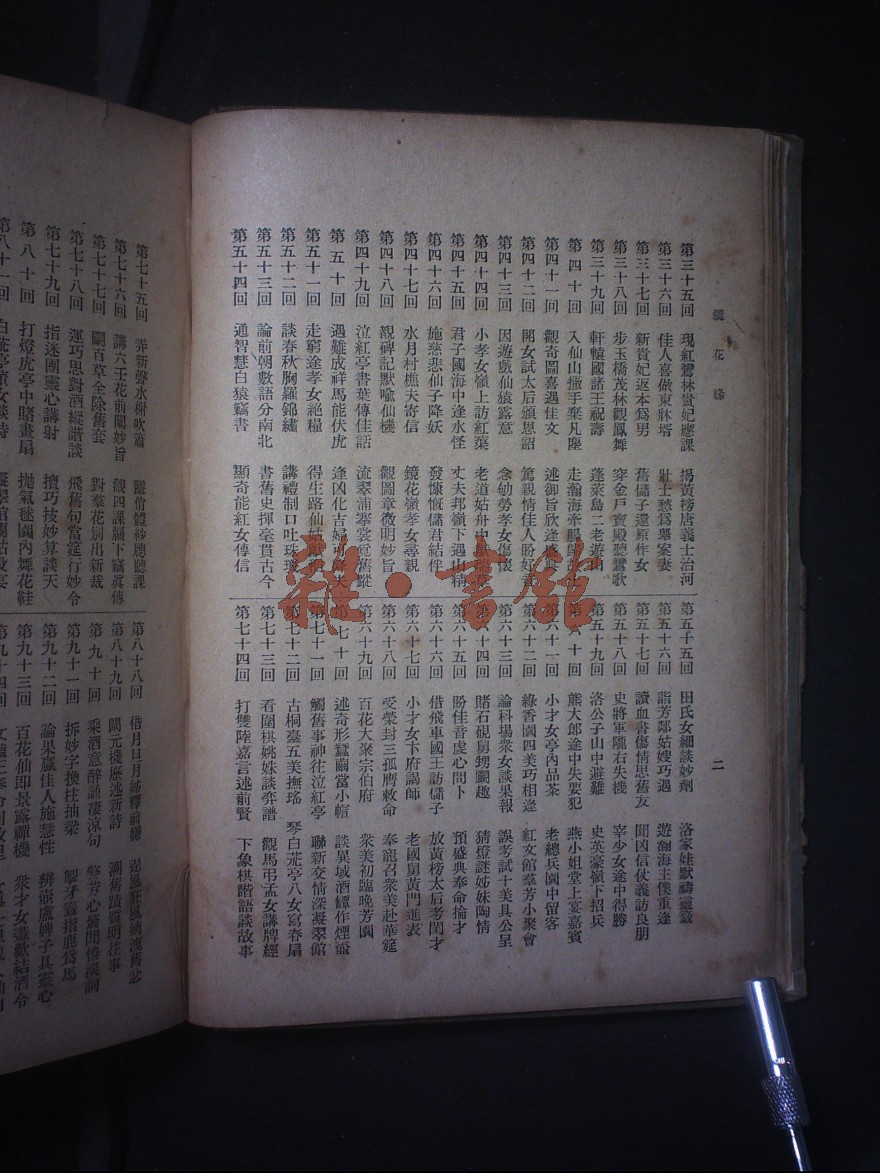 鏡花緣
二
第三十五回 現紅鸞林貴妃應課 揭黃榜唐義士治河
第三十六回 佳人喜做東牀壻 壯士愁爲擧案妻
第三十七回 新貴妃返本爲男 舊儲子還原作女
第三十八回 步玉橋茂林觀鳳舞 穿金戶寶殿聽鸞歌
第三十九回 軒轅國諸王祝壽 蓬萊島二老遊山
第四十回 入仙山撒手棄凡塵 走瀚海牽腸
第四十一回 觀奇圖喜遇佳文 述御旨欣逢盛典
第四十二回 開女試太后頒恩詔 篤親情佳人盼好音
第四十三回 因遊戲仙猿露意 念劬勞孝女傷懷
第四十四回 小孝女嶺上訪紅蕖 老道姑舟中獻瑞草
第四十五回 君子國海中逢水怪 丈夫邦嶺下遇山精
第四十六回 施慈悲仙子降妖 發慷慨儲君結伴
第四十七回 水月村樵夫寄信 鏡花嶺孝女尋親
第四十八回 覩碑記默喻仙機 觀圖章微明妙旨
第四十九回 泣紅亭書葉傳佳話 流翠浦搴裳覓舊蹤
第五十回 遇難成祥馬能伏虎 逢凶化吉婦可降夫
第五十一回 走窮途孝女絕糧 得生路仙姑獻稻
第五十二回 談春秋胸羅錦繡 講禮制口吐珠璣
第五十三回 論前朝數語分南北 書舊史揮毫貫古今
第五十四回 通智慧白猿竊書 顯奇能紅女傳信
第五十五回 田氏女細談妙劑 洛家娃默禱靈籤
第五十六回 詣芳鄰姑嫂巧遇 遊瀚海主僕重逢
第五十七回 讀血書傷情思舊友 聞凶信仗義訪良朋
第五十八回 史將軍隴右失機 宰少女途中得勝
第五十九回 洛公子山中避難 史英豪嶺下招兵
第六十回 熊大郎途中失要犯 燕小姐堂上宴嘉賓
第六十一回 小才女亭內品茶 老總兵園中留客
第六十二回 綠香園四美巧相逢 紅文館羣芳小聚會
第六十三回 論科場衆女談果報 誤考試十美具公呈
第六十四回 賭石硯舅甥鬬趣 猜燈謎姊妹陶情
第六十五回 盼佳音虔心問卜 預盛典奉命掄才
第六十六回 借飛車國王訪儲子 放黃榜太后考閨才
第六十七回 小才女卞府謁師 老國舅黃門進表
第六十八回 受榮封三孤膺敕命 奉寵召衆美赴華筵
第六十九回 百花大聚宗伯府 衆美初臨晚芳園
第七十回 述奇形蠶繭當小帽 談異域酒罎作煙壺
第七十一回 觸舊事神往泣紅亭 聯新交情深凝翠館
第七十二回 古桐臺五美撫瑤琴 白茫亭八女寫春扇
第七十三回 看圍棋姚姝談弈譜 觀馬弔孟女講牌經
第七十四回 打雙陸嘉言述前賢 下象棋諧語談故事
第七十五回 弄新聲水榭吹簫 隱僧體紗牕聽課
第七十六回 講六壬花前闡妙旨 觀四課牖下竊眞傳
第七十七回 鬬百草全除舊套 對羣花別出新裁
第七十八回 運巧思對酒縱諧談 飛舊句當筵行妙令
第七十九回 指迷團靈心講射 擅巧技妙算談天
第八十回 打燈虎亭中賭畫扇 拋氣毬園內舞花鞋
第八十一回 白茫亭董女談詩 凝翠館蘭姑設宴
第八十八回 借月日月姊釋前嫌
第八十九回 闡元機歷述新詩 溯舊蹟質明往事
第九十回 乘酒意醉誦淒涼句 警芳心驚聞慘淡詞
第九十一回 拆妙字換柱抽梁 掣牙籤指鹿爲馬
第九十二回 論果贏佳人施慧性 辨壺盧婢子具靈心
第九十三回 百花仙卽景露禪機 衆才女盡歡結酒令
第九十四回
雜·書館